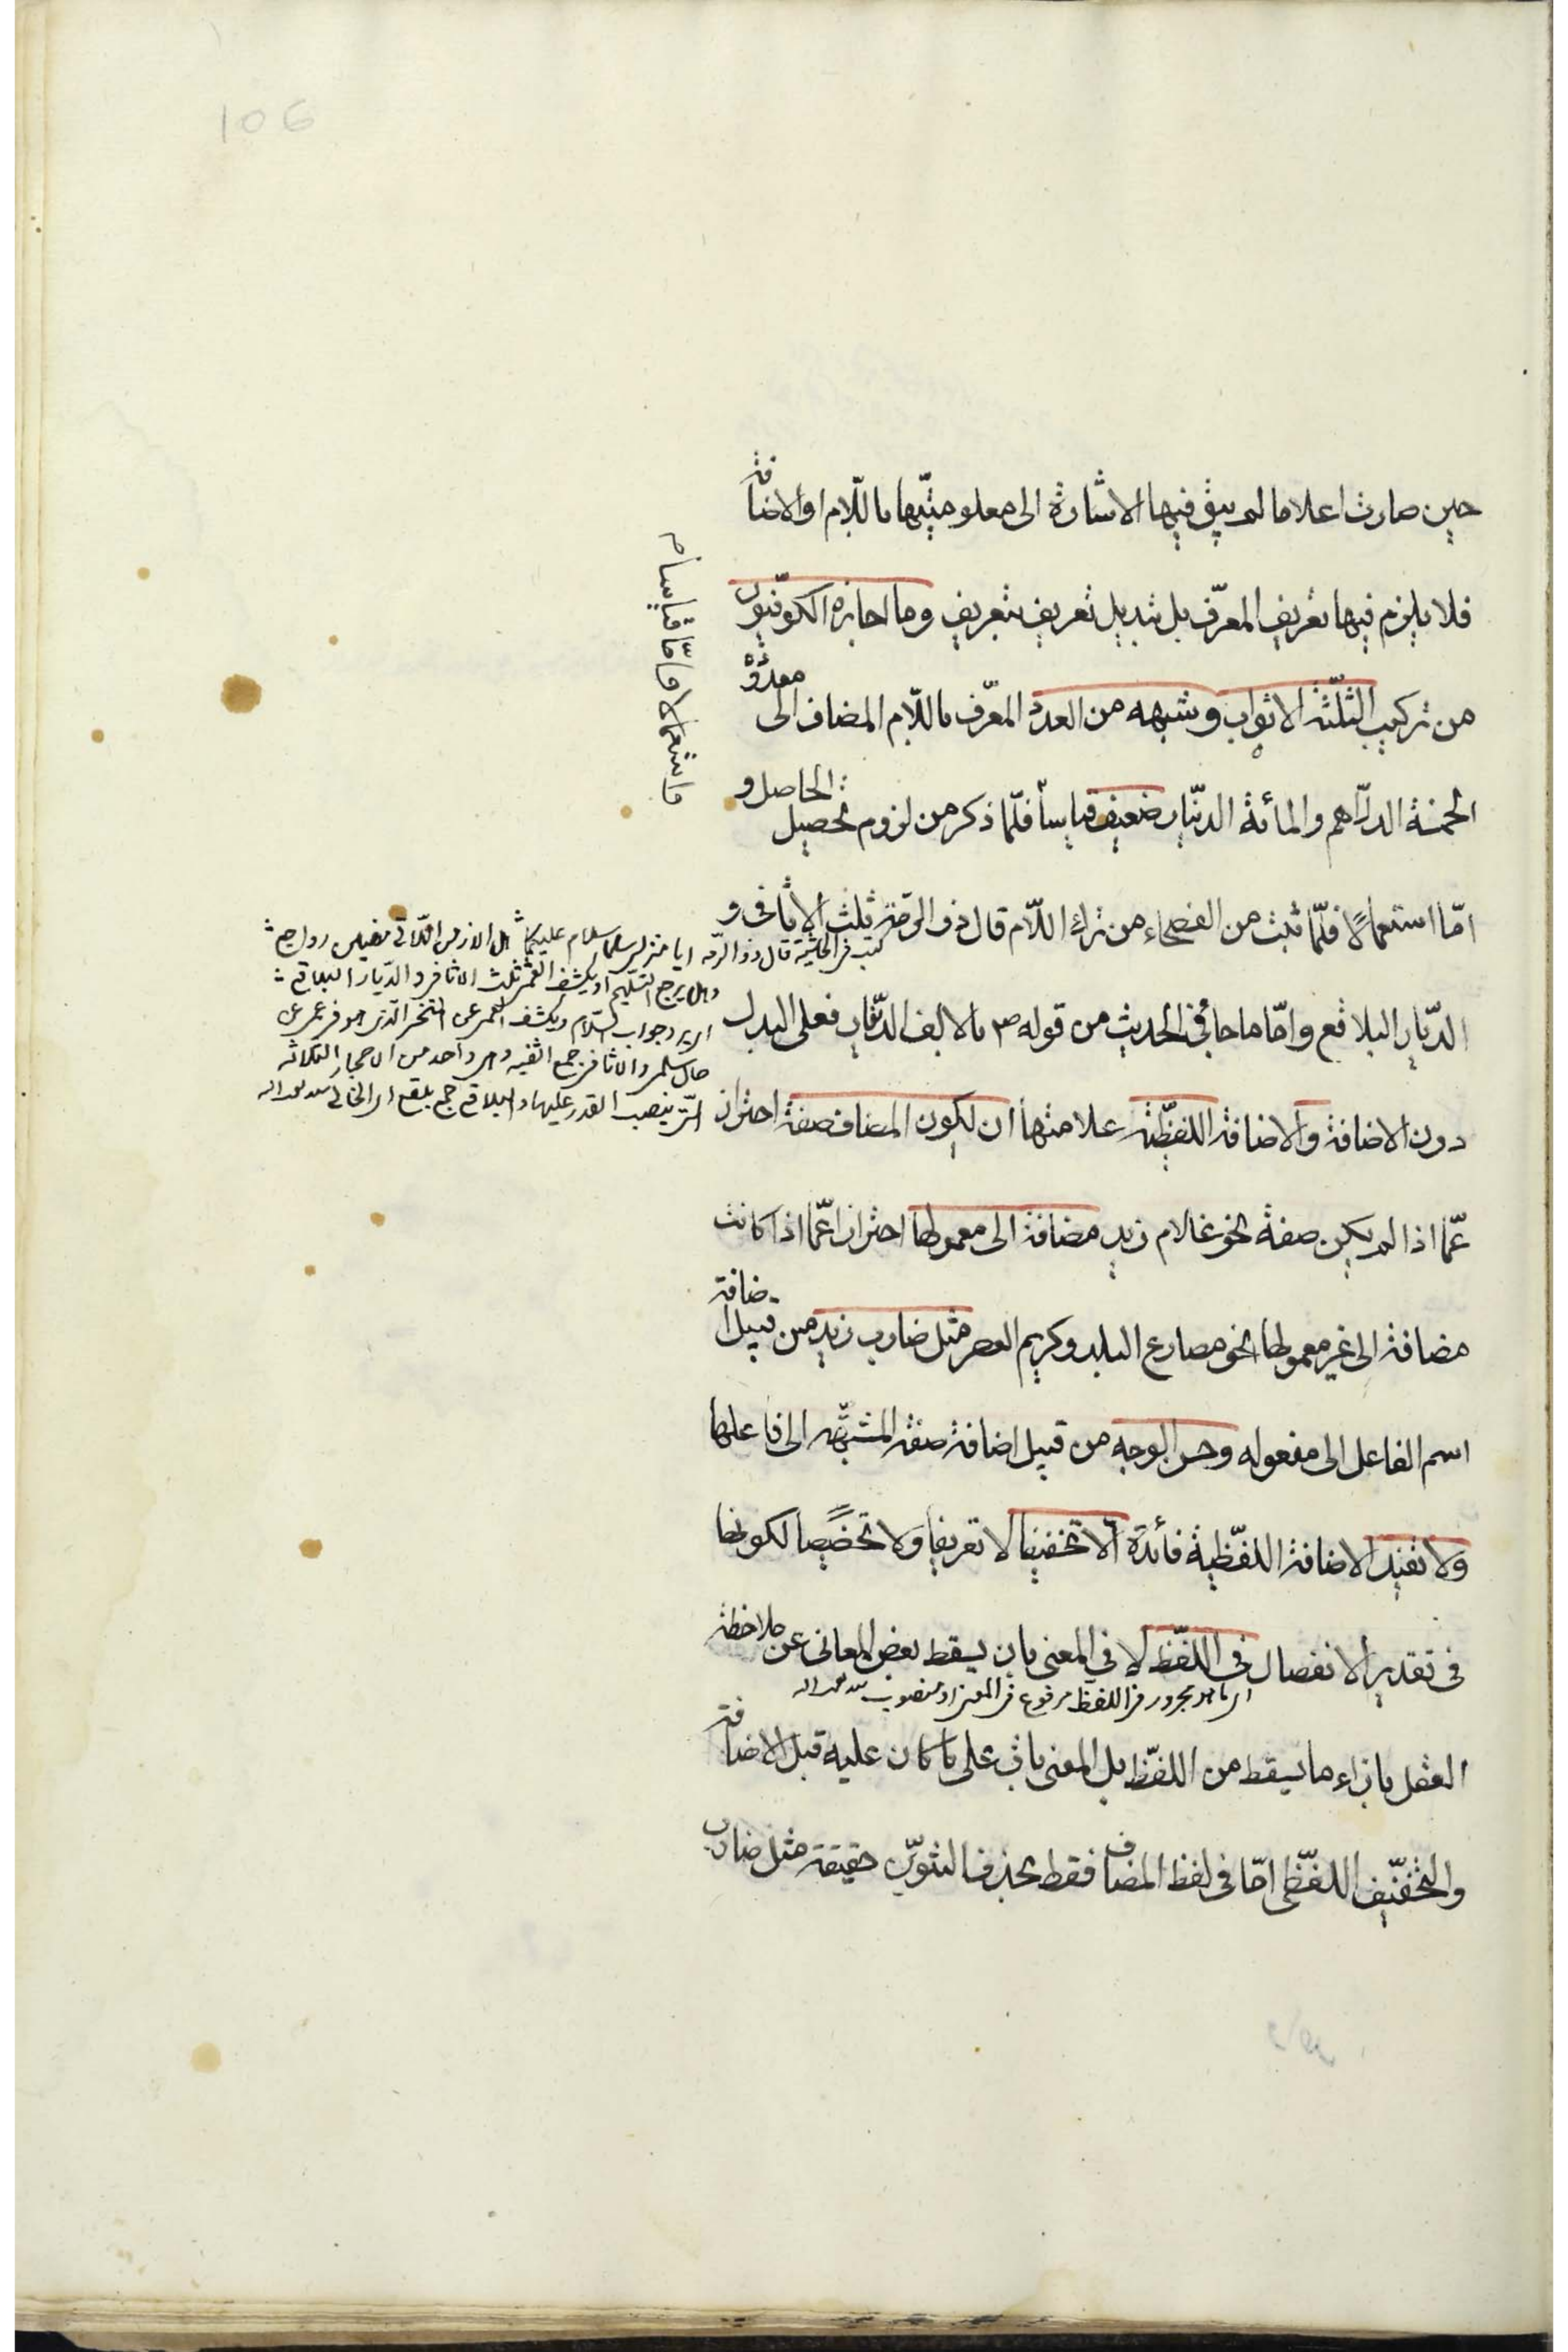 106
حين صارت اعلاما لم يبق فيها الاشارة الى معلوميتها باللام او الاضافة
فلا يلزم فيها تعريف المعرف بل تبديل تعريف بتعريف وما اجازه الكوفيون
من تركيب الثلثة الاثواب وشبهه من العدد المعرف باللام المضاف الى معدوده
الخمسة الدراهم والمائة الدينار ضعيف قياسا فلما ذكر من لزوم تحصيل الحاصل و
اما استعمالا فلما ثبت من الفصحاء من ترك اللام قال ذو الرمة ثلث الاثافى و
الديار البلاقع واما ما جاء فى الحديث من قوله ص م بالالف الدينار فعلى البدل
دون الاضافة والاضافة اللفظية علامتها ان يكون المضاف صفة احتراز
عما اذا لم يكن صفة نحو غلام زيد مضافة الى معمولها احترازا عما اذا كانت
مضافة الى غير معمولها نحو مصارع البلد وكريم العصر مثل ضارب زيد من قبيل اضافة
اسم الفاعل الى مفعوله وحسن الوجه من قبيل اضافة صفة المشبهه الى فاعلها
ولا تفيد الاضافة اللفظية فائدة الا تخفيفا لا تعريفا ولا تخصيصا لكونها
فى تقدير الانفصال فى اللفظ لا فى المعنى بان يسقط بعض المعانى عن ملاحظة
العقل بازاء ما يسقط من اللفظ بل المعنى باق على ما كان عليه قبل الاضافة
والتخفيف اللفظى اما فى لفظ المضاف فقط بحذف التنوين حقيقة مثل ضارب
ما استعمالا اما قياسا م
كتب فى الحاشية قال ذو الرمه ايا منزلى سلمى سلام عليكما هل الازمن اللاتى مضين رواجع
وهل يرجع التسليم او يكشف العمى ثلث الاثافى والديار البلاقع
اى يرد جواب السلام ويكشف العمى عن
حال سلمى والاثافى جمع اثفيه وهى واحد من الاحجار الثلاثه
التى ينصب القدر عليها والبلاقع جمع بلقع اى الخالى
اى ما هو مجرور فى اللفظ مرفوع فى المعنى او منصوب